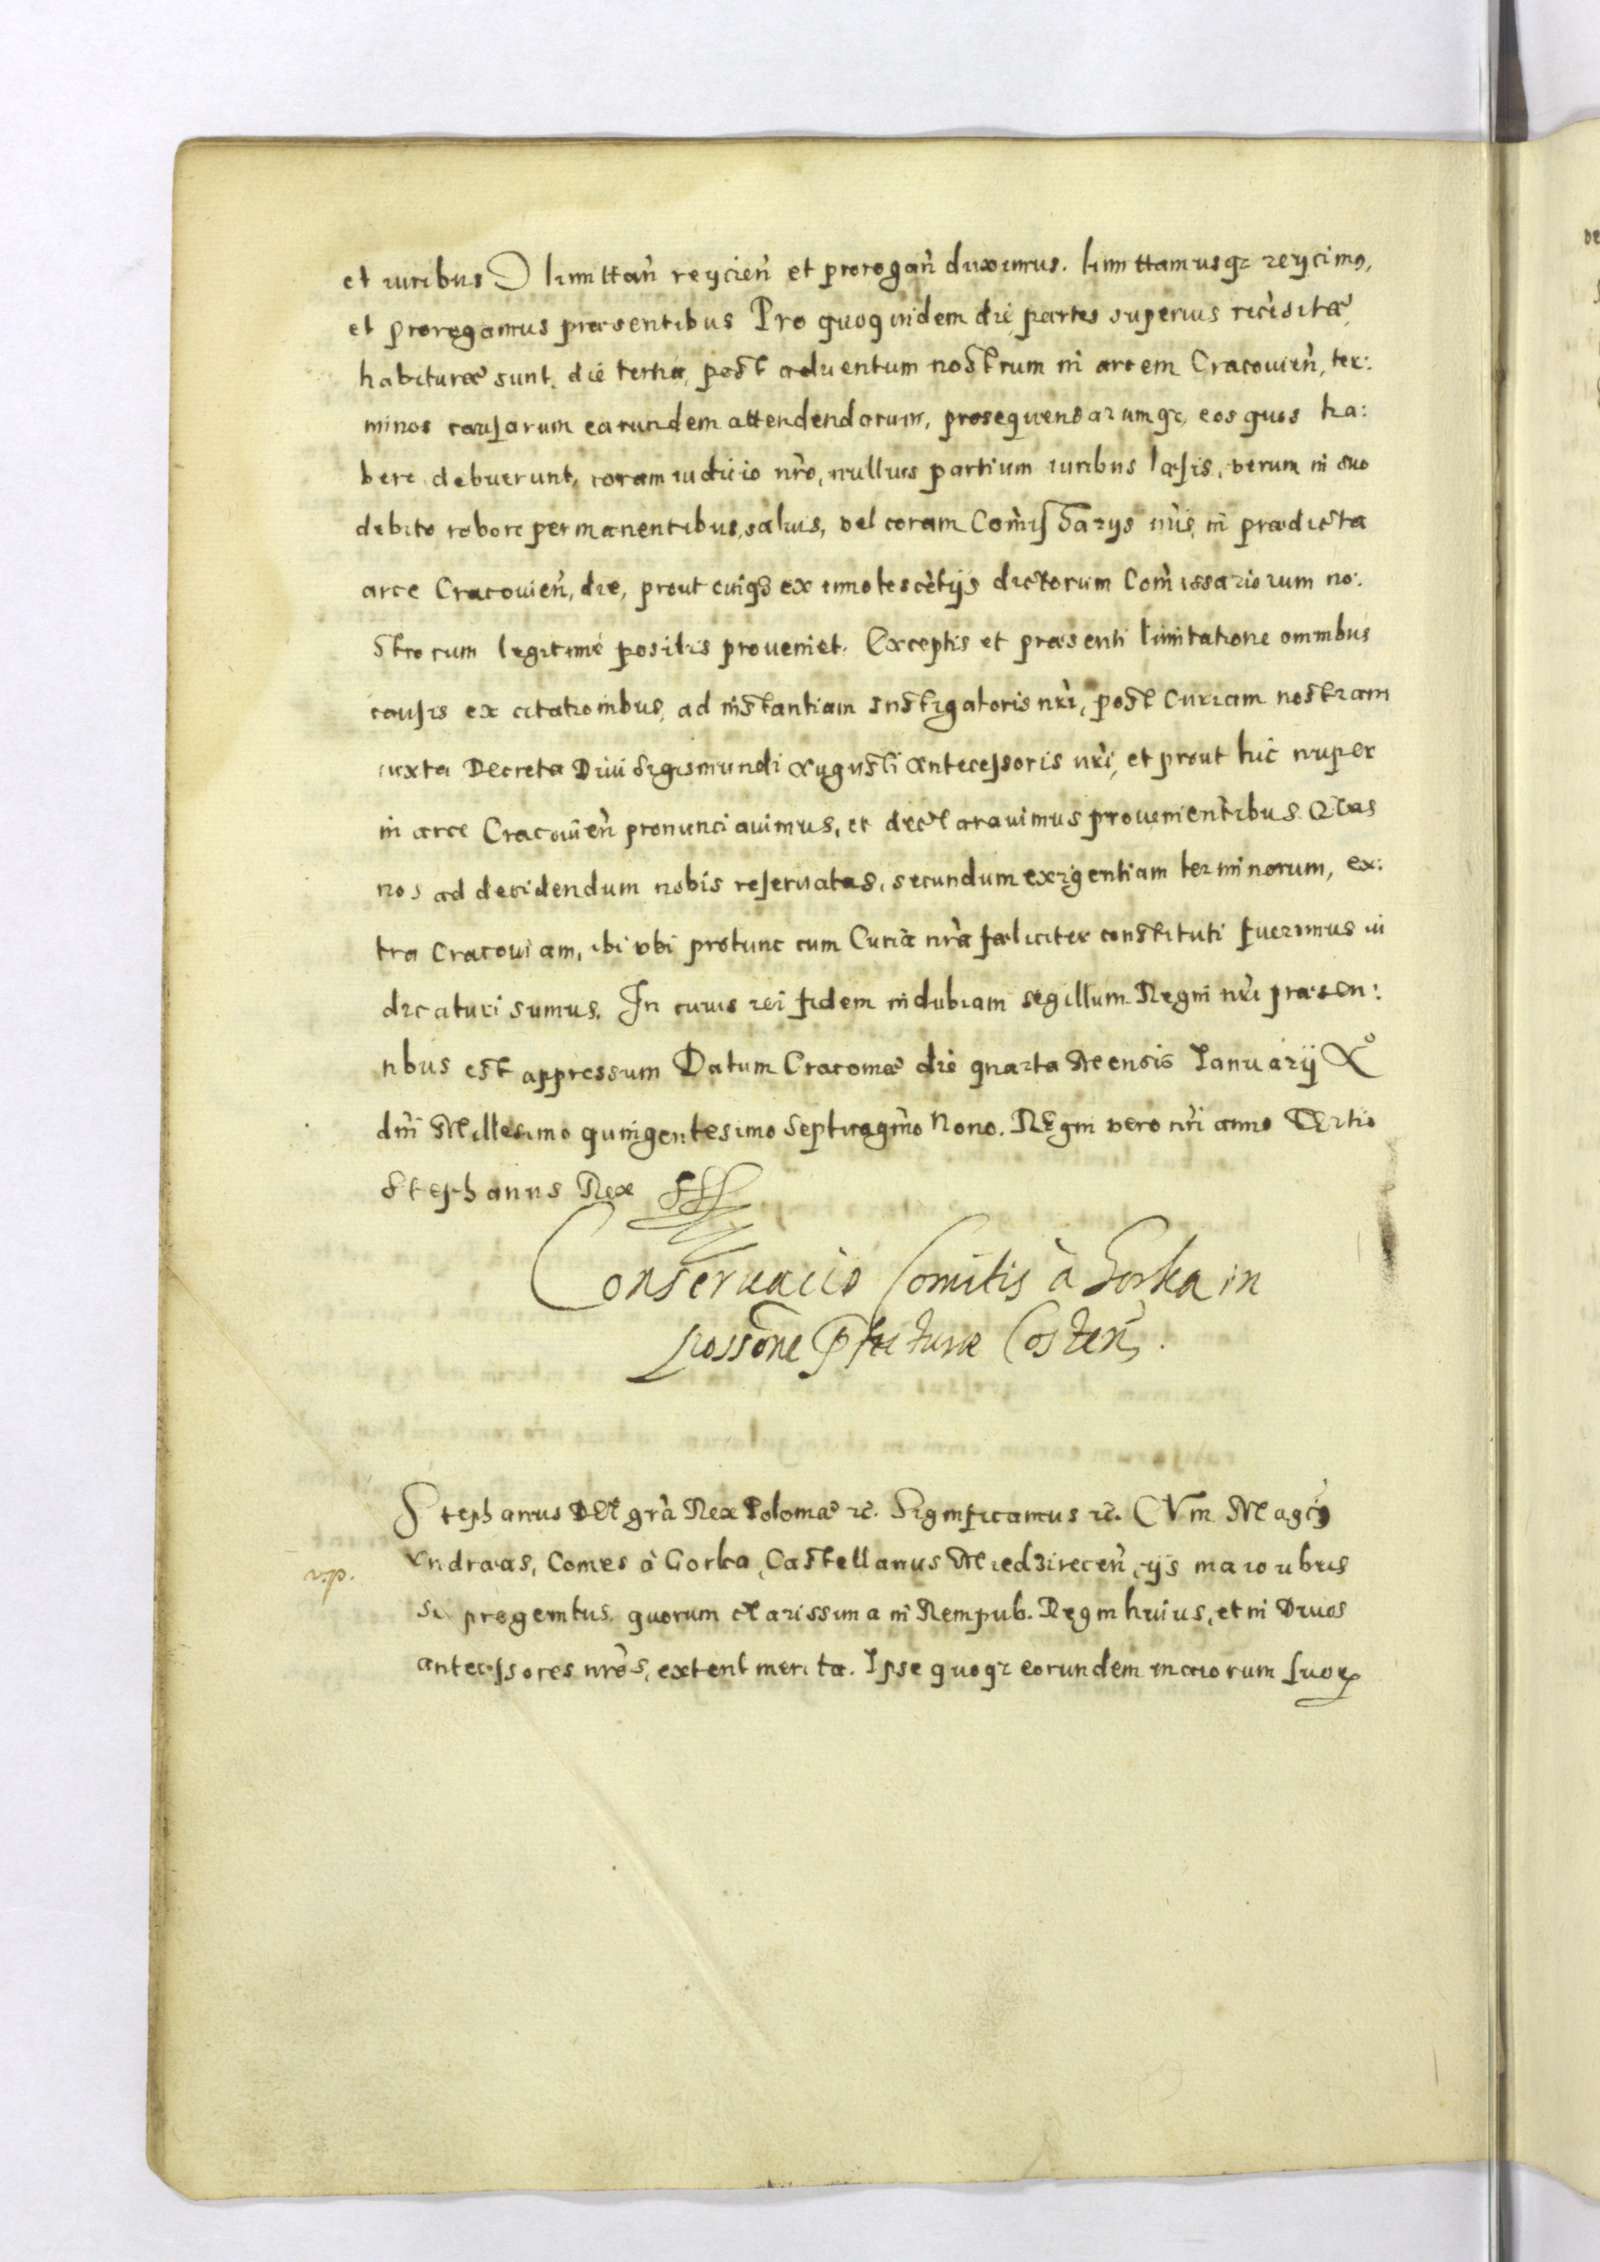 et iuribus limittan̄ reijcien̄ et prorogan̄ duximus. limittamusq3 reijcim9,
et prorogamus præsentibus Pro quoquidem die partes superius recēsitæ,
habituræ sunt, die tertia, post aduentum nostrum in arcem Cracouien̄, ter:
minos causarum earundem attendendorum, prosequendarumq3, eos quos ha:
bere debuerunt, coram iudicio nr̄o, nullius partium iuribus læsis, verum in suo
debito robore permanentibus, saluis, vel coram Com̄issarijs nr̄is, in prædicta
arce Cracouien̄, die, prout cuiq3 ex innotescētijs dictorum Com̄issariorum no:
strorum legitime positis proueniet. Exceptis et præsenti limitatione omnibus
causis ex citationibus, ad instantiam Instigatoris nr̄i, post Curiam nostram
iuxta Decreta Diui Sigismundi Augusti Antecessoris nr̄i, et prout hic nuper
in arce Cracouien̄ pronunciauimus, et declarauimus prouenientibus Quas
nos ad decidendum nobis reseruatas, secundum exigentiam terminorum, ex:
tra Cracouiam, ibi vbi protunc cum Curia nr̄a fæliciter constituti fuerimus iu
dicaturi sumus. In cuius rei fidem indubiam sigillum Regni nr̄i præsen:
tibus est appressum Datum Cracouiæ die quarta Mensis Ianuarij A°
dn̄i Millesimo quingentesimo Septuagm̄o Nono. Regni vero nr̄i anno Tertio
Stephanus Rex
Conseruacio Comitis à Gorka in
possōne Pfecturæ Costen̄.
Stephanus DEI gr̄a Rex Poloniæ rc̄. Significamus rc̄. CVm Magc9
Andræas, Comes à Gorka, Castellanus Miedzirecen̄, ijs maioribus
v.p.
sit progenitus, quorum clarissima in Rempub. Regni huius, et in Diuos
antecessores nr̄os, extent merita. Ipse quoq3 eorundem maiorum suoꝝ